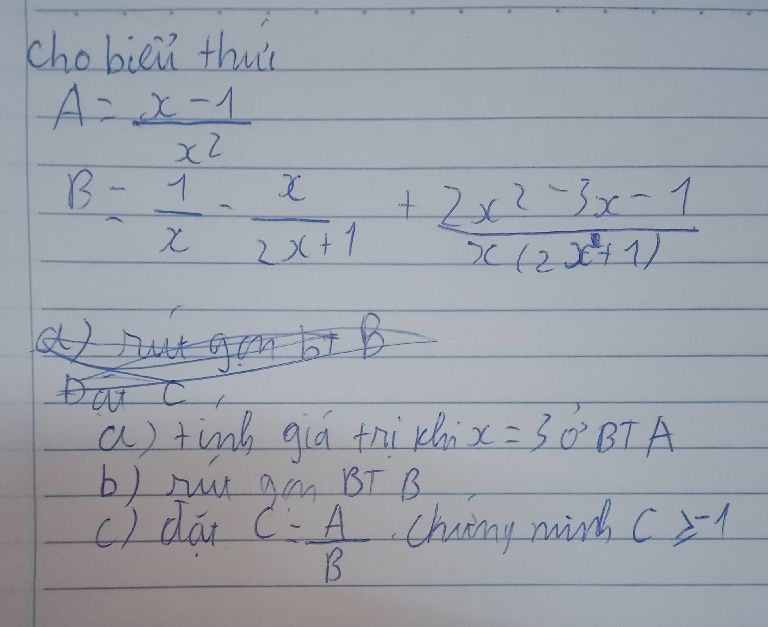 Cho biểu thức
A = \frac{x - 1}{x^2}
B = \frac{1}{x} - \frac{x}{2x+1} + \frac{2x^2 - 3x - 1}{x(2x+1)}
a) rút gọn bt B
Đặt C,
a) tính giá trị khi x = 3 ở BT A
b) rút gọn BT B
c) đặt C = \frac{A}{B}. Chứng minh C ≥ -1